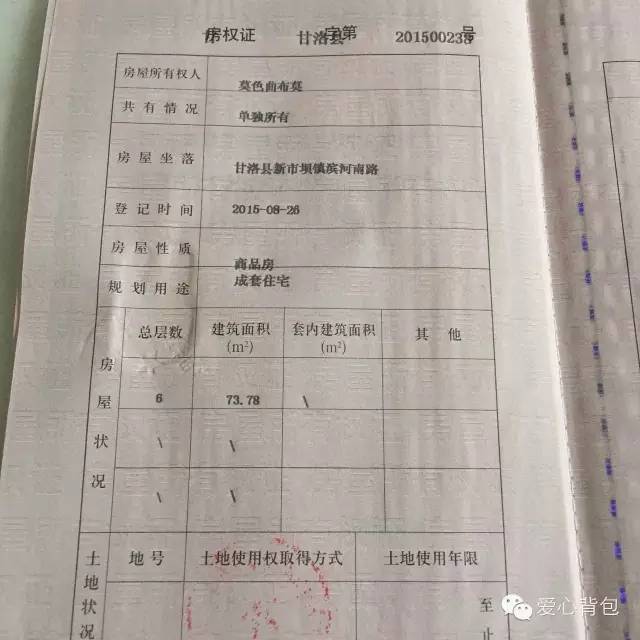 房权证 甘洛县 字第 201500238 号
房屋所有权人 莫色曲布莫
共有情况 单独所有
房屋坐落 甘洛县新市坝镇滨河南路
登记时间 2015-08-26
房屋性质 商品房
规划用途 成套住宅
房屋状况
总层数 建筑面积(m²) 套内建筑面积(m²) 其他
6 73.78 \
\ \
\ \
土地状况
地号 土地使用权取得方式 土地使用年限
至
止
爱心背包